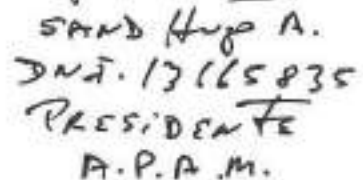 SAND Hugo A.
DNI. 13165835
PRESIDENTE
A.P.A.M.